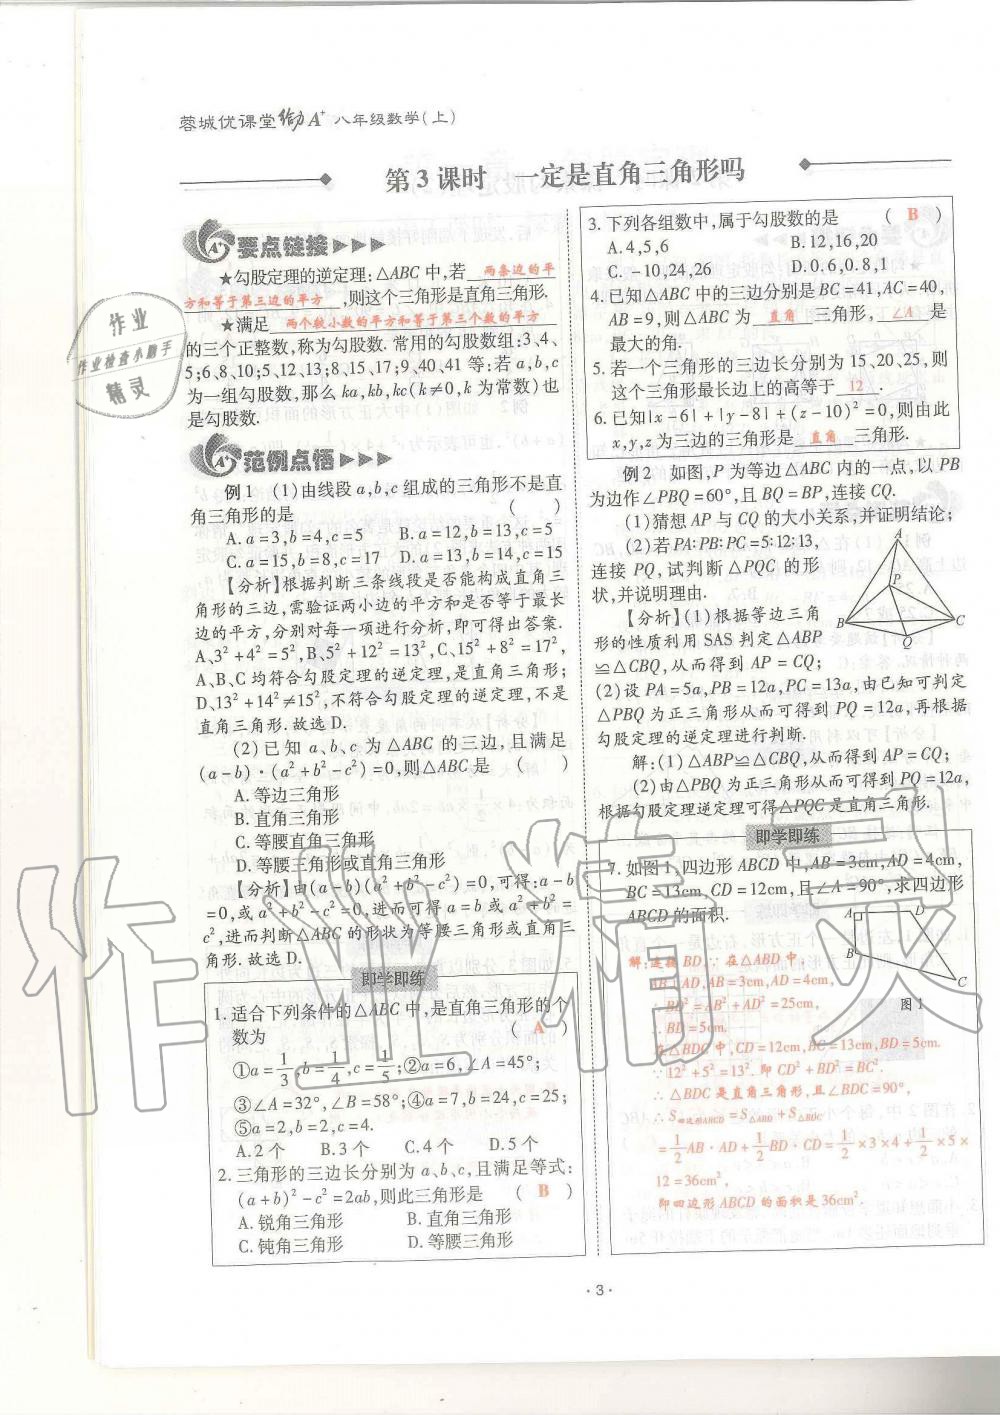 蓉城优课堂 给力A⁺ 八年级数学(上)
第3课时 一定是直角三角形吗
要点链接
★勾股定理的逆定理:△ABC中,若 两条边的平
方和等于第三边的平方 ,则这个三角形是直角三角形.
★满足 两个较小数的平方和等于第三个数的平方
的三个正整数,称为勾股数. 常用的勾股数组:3、4、
5;6、8、10;5、12、13;8、15、17;9、40、41 等;若a,b,c
为一组勾股数,那么 ka,kb,kc(k≠0,k 为常数)也
是勾股数.
范例点悟
例1 (1)由线段a,b,c组成的三角形不是直
角三角形的是 ( )
A. a=3,b=4,c=5 B. a=12,b=13,c=5
C. a=15,b=8,c=17 D. a=13,b=14,c=15
【分析】根据判断三条线段是否能构成直角三
角形的三边,需验证两小边的平方和是否等于最长
边的平方,分别对每一项进行分析,即可得出答案.
A、3²+4²=5²,B、5²+12²=13²,C、15²+8²=17²,
A、B、C均符合勾股定理的逆定理,是直角三角形;
D、13²+14²≠15²,不符合勾股定理的逆定理,不是
直角三角形.故选D.
(2)已知a、b、c为△ABC的三边,且满足
(a-b)·(a²+b²-c²)=0,则△ABC是 ( )
A. 等边三角形
B. 直角三角形
C. 等腰直角三角形
D. 等腰三角形或直角三角形
【分析】由(a-b)(a²+b²-c²)=0,可得:a-b
=0,或a²+b²-c²=0,进而可得a=b或a²+b²=
c²,进而判断△ABC的形状为等腰三角形或直角三
角形.故选D.
即学即练
1. 适合下列条件的△ABC中,是直角三角形的个
数为 ( A )
①a=1/3,b=1/4,c=1/5;②a=6,∠A=45°;
③∠A=32°,∠B=58°;④a=7,b=24,c=25;
⑤a=2,b=2,c=4.
A. 2个 B. 3个 C. 4个 D. 5个
2. 三角形的三边长分别为a、b、c,且满足等式:
(a+b)²-c²=2ab,则此三角形是 ( B )
A. 锐角三角形 B. 直角三角形
C. 钝角三角形 D. 等腰三角形
3. 下列各组数中,属于勾股数的是 ( B )
A. 4,5,6 B. 12,16,20
C. -10,24,26 D. 0.6,0.8,1
4. 已知△ABC中的三边分别是BC=41,AC=40,
AB=9,则△ABC为 直角 三角形, ∠A 是
最大的角.
5. 若一个三角形的三边长分别为15、20、25,则
这个三角形最长边上的高等于 12 .
6. 已知|x-6|+|y-8|+(z-10)²=0,则由此
x,y,z为三边的三角形是 直角 三角形.
例2 如图,P为等边△ABC内的一点,以PB
为边作∠PBQ=60°,且BQ=BP,连接CQ.
(1)猜想AP与CQ的大小关系,并证明结论;
(2)若PA∶PB∶PC=5∶12∶13,
连接PQ,试判断△PQC的形
状,并说明理由.
A
P
B
C
Q
【分析】(1)根据等边三角
形的性质利用SAS判定△ABP
≌△CBQ,从而得到AP=CQ;
(2)设PA=5a,PB=12a,PC=13a,由已知可判定
△PBQ为正三角形从而可得到PQ=12a,再根据
勾股定理的逆定理进行判断.
解:(1)△ABP≌△CBQ,从而得到AP=CQ;
(2)由△PBQ为正三角形从而可得到PQ=12a,
根据勾股定理逆定理可得△PQC是直角三角形.
即学即练
7. 如图1,四边形ABCD中,AB=3cm,AD=4cm,
BC=13cm,CD=12cm,且∠A=90°,求四边形
ABCD的面积.
A
D
B
C
图1
解:连接BD.∵在△ABD中,
AB⊥AD,AB=3cm,AD=4cm,
∴BD²=AB²+AD²=25cm,
∴BD=5cm.
在△BDC中,CD=12cm,BC=13cm,BD=5cm.
∵12²+5²=13².即CD²+BD²=BC².
∴△BDC是直角三角形,且∠BDC=90°,
∴S四边形ABCD=S△ABD+S△BDC
=1/2AB·AD+1/2BD·CD=1/2×3×4+1/2×5×
12=36cm²,
即四边形ABCD的面积是36cm².
·3·
作业
作业检查小助手
精灵
作业精灵